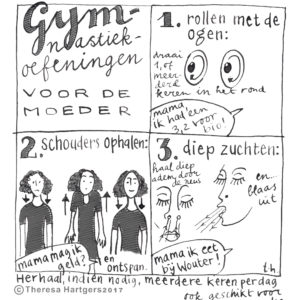 Gym-
nastiek-
oefeningen
VOOR DE
MOEDER
1. rollen met de
ogen:
draai
1, of
meer-
dere
keren in het rond
mama
ik had een
3,2 voor
bio!
2. schouders ophalen:
mama mag ik
geld?
en
ontspan.
3. diep zuchten:
haal diep
adem door
de neus
en...
blaas
uit
mama ik eet
bij Wouter!
th.
Herhaal, indien nodig, meerdere keren per dag
ook geschikt voor
© Theresa Hartgers 2017